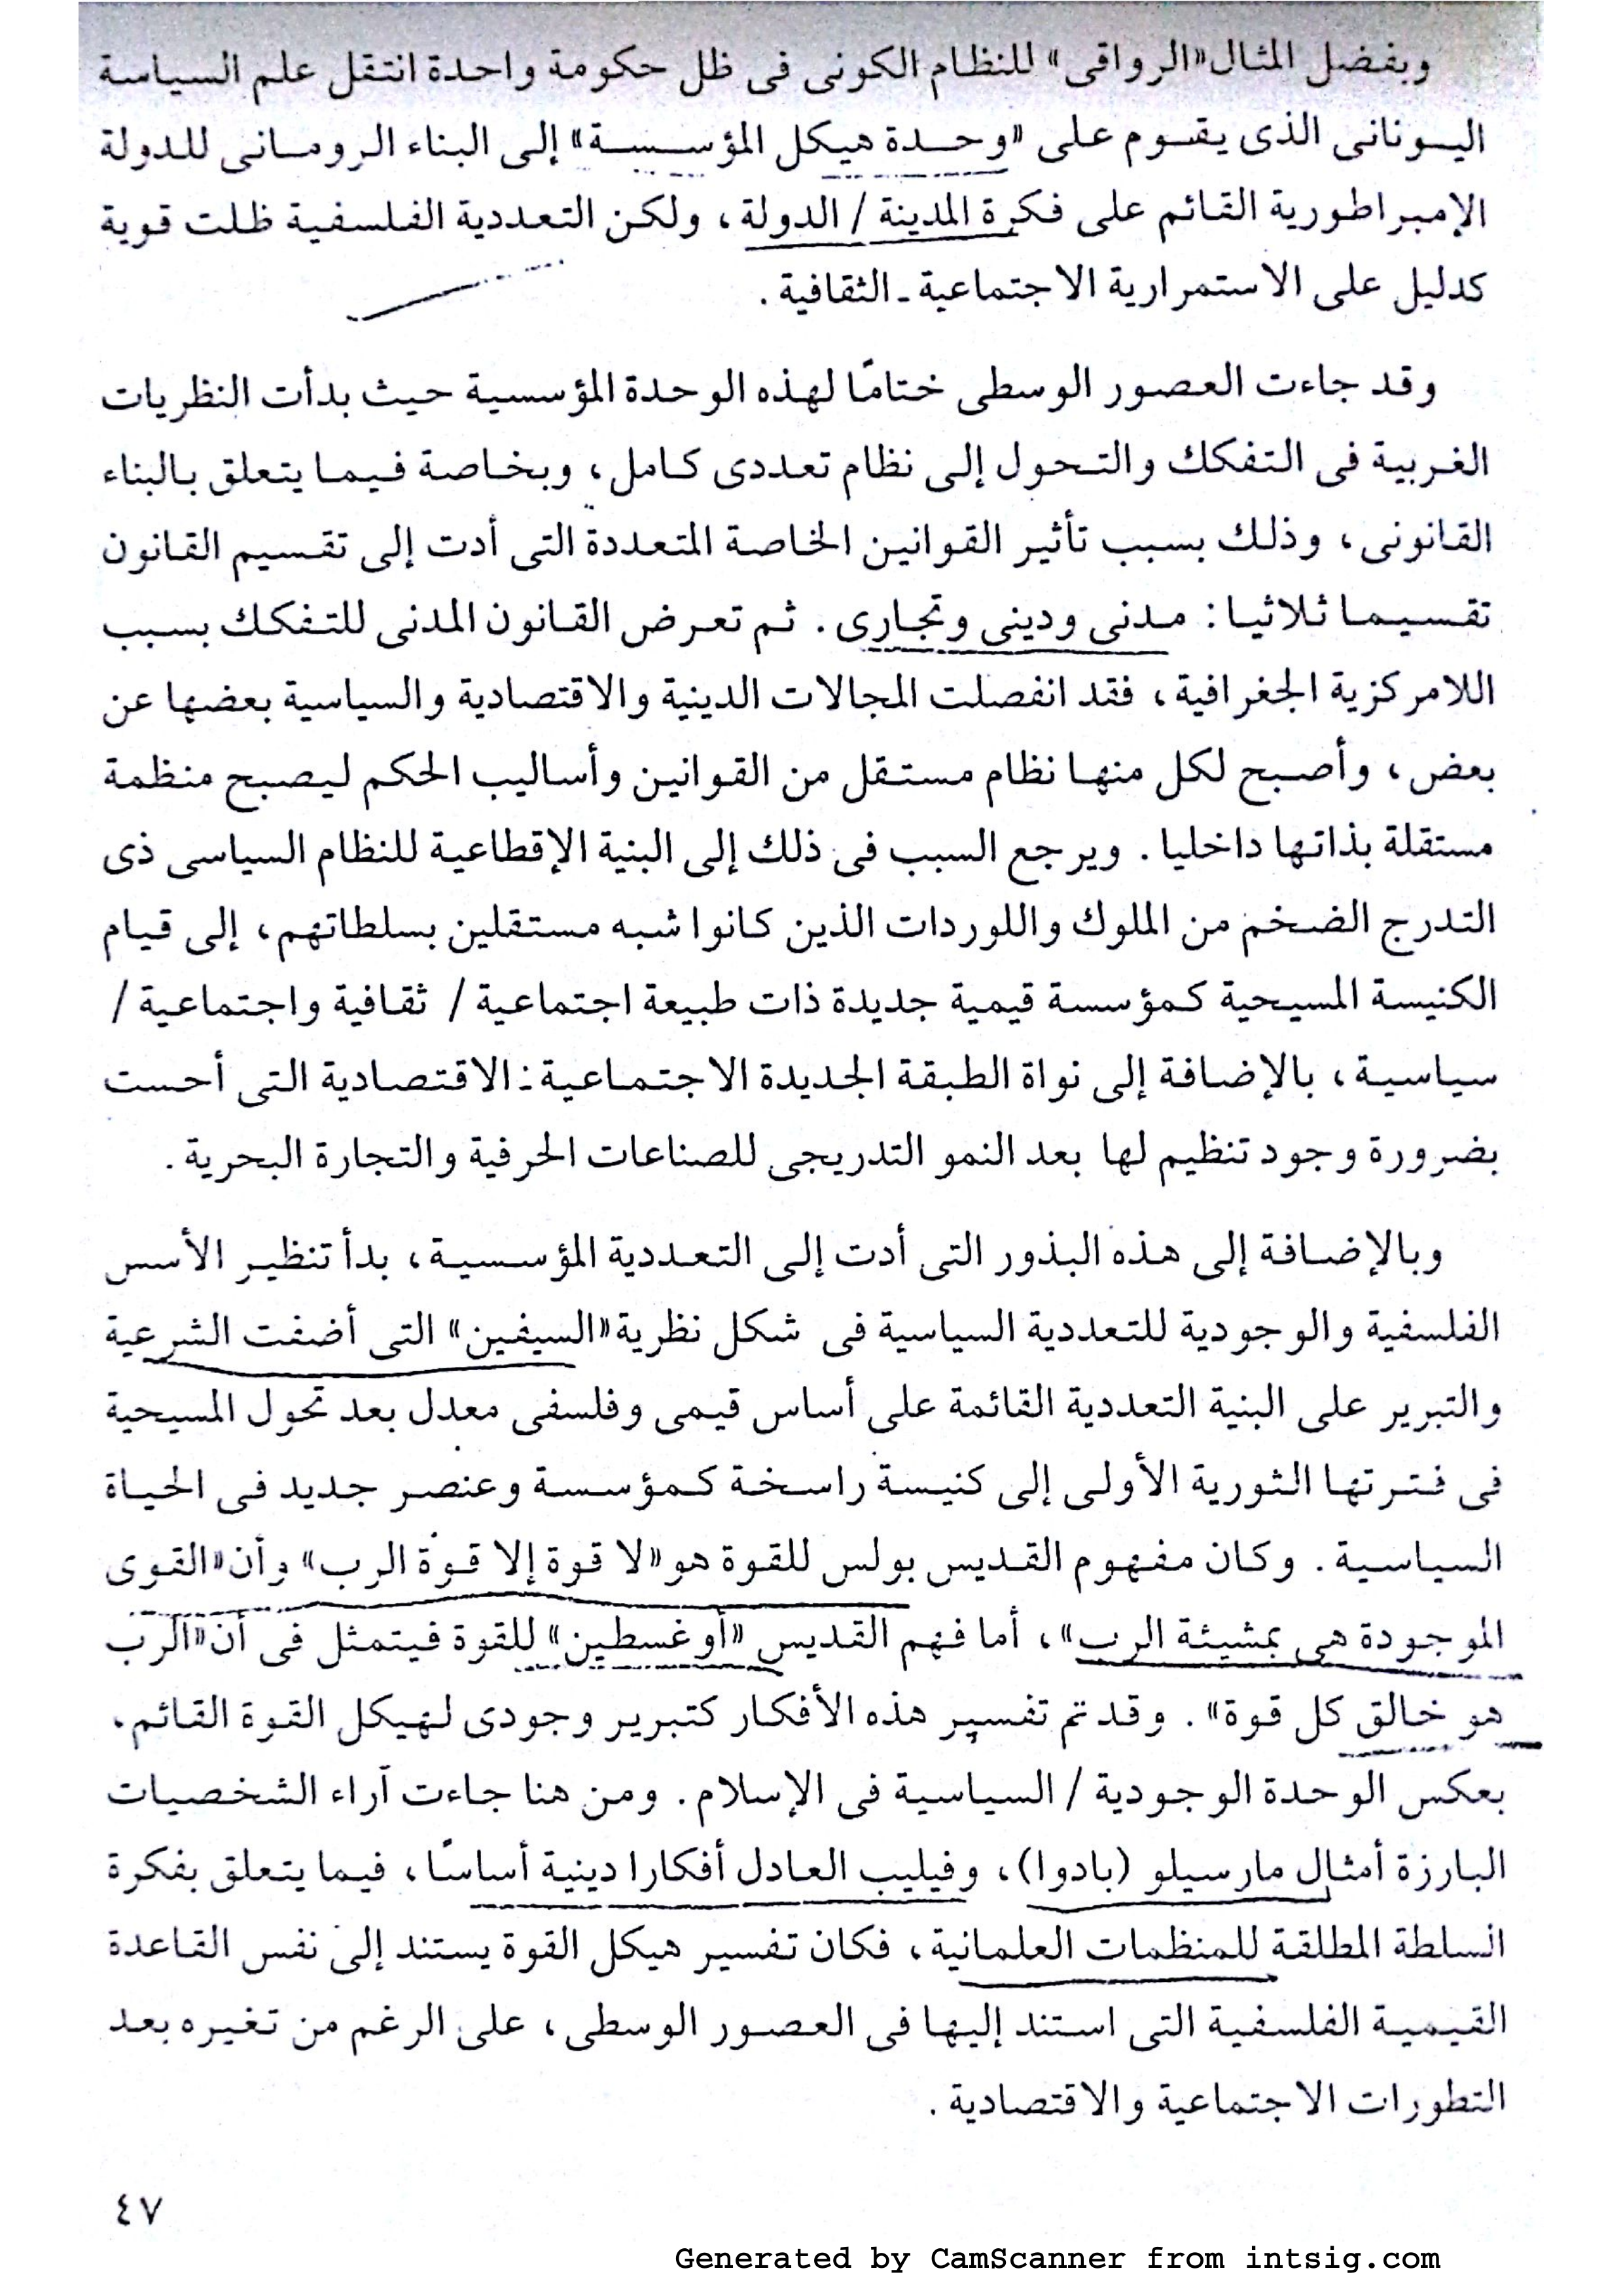 وبفضل المثال «الرواقى» للنظام الكونى فى ظل حكومة واحدة انتقل علم السياسة
اليونانى الذى يقوم على «وحدة هيكل المؤسسة» إلى البناء الرومانى للدولة
الإمبراطورية القائم على فكرة المدينة / الدولة، ولكن التعددية الفلسفية ظلت قوية
كدليل على الاستمرارية الاجتماعية ـ الثقافية .
وقد جاءت العصور الوسطى ختامًا لهذه الوحدة المؤسسية حيث بدأت النظريات
الغربية فى التفكك والتحول إلى نظام تعددى كامل، وبخاصة فيما يتعلق بالبناء
القانونى، وذلك بسبب تأثير القوانين الخاصة المتعددة التى أدت إلى تقسيم القانون
تقسيما ثلاثيا : مدنى ودينى وتجارى . ثم تعرض القانون المدنى للتفكك بسبب
اللامركزية الجغرافية، فقد انفصلت المجالات الدينية والاقتصادية والسياسية بعضها عن
بعض، وأصبح لكل منها نظام مستقل من القوانين وأساليب الحكم ليصبح منظمة
مستقلة بذاتها داخليا . ويرجع السبب فى ذلك إلى البنية الإقطاعية للنظام السياسى ذى
التدرج الضخم من الملوك واللوردات الذين كانوا شبه مستقلين بسلطاتهم، إلى قيام
الكنيسة المسيحية كمؤسسة قيمية جديدة ذات طبيعة اجتماعية / ثقافية واجتماعية /
سياسية، بالإضافة إلى نواة الطبقة الجديدة الاجتماعية : الاقتصادية التى أحست
بضرورة وجود تنظيم لها بعد النمو التدريجى للصناعات الحرفية والتجارة البحرية .
وبالإضافة إلى هذه البذور التى أدت إلى التعددية المؤسسية، بدأ تنظير الأسس
الفلسفية والوجودية للتعددية السياسية فى شكل نظرية «السيفين» التى أضفت الشرعية
والتبرير على البنية التعددية القائمة على أساس قيمى وفلسفى معدل بعد تحول المسيحية
فى فترتها الثورية الأولى إلى كنيسة راسخة كمؤسسة وعنصر جديد فى الحياة
السياسية . وكان مفهوم القديس بولس للقوة هو «لا قوة إلا قوة الرب» وأن «القوى
الموجودة هى بمشيئة الرب»، أما فهم القديس «أوغسطين» للقوة فيتمثل فى أن «الرب
هو خالق كل قوة» . وقد تم تفسير هذه الأفكار كتبرير وجودى لهيكل القوة القائم،
بعكس الوحدة الوجودية / السياسية فى الإسلام . ومن هنا جاءت آراء الشخصيات
البارزة أمثال مارسيلو (بادوا)، وفيليب العادل أفكارا دينية أساسًا، فيما يتعلق بفكرة
السلطة المطلقة للمنظمات العلمانية، فكان تفسير هيكل القوة يستند إلى نفس القاعدة
القيمية الفلسفية التى استند إليها فى العصور الوسطى، على الرغم من تغيره بعد
التطورات الاجتماعية والاقتصادية .
٤٧
Generated by CamScanner from intsig.com